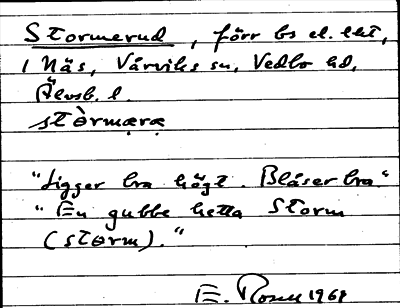 Stormerud, förr bs el. lht,
i Näs, Vårviks sn, Vedbo hd,
Älvsb. l.
stòrmæræ
"Ligger bra högt. Blåser bra."
"En gubbe hetta Storm
(storm)."
E. Rosen 1969